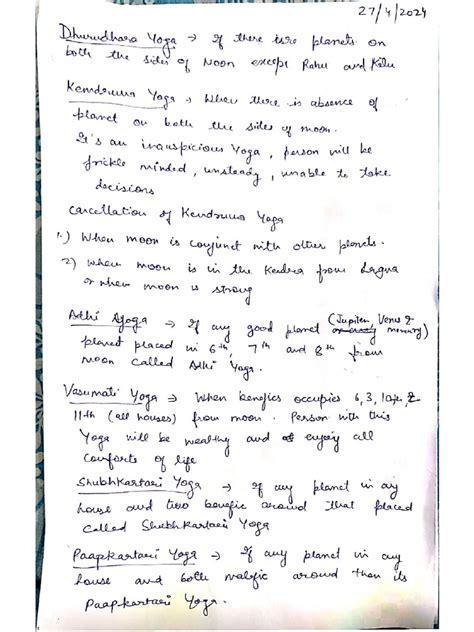 27/4/2024
Dhurudhara Yoga → If there are planets on
both the sides of Moon except Rahu and Ketu
Kemdruma Yoga → When there is absence of
planet on both the sides of moon.
It's an inauspicious Yoga, person will be
frickle minded, unsteady, unable to take
decisions
cancellation of Kemdruma Yoga
1.) When moon is conjunct with other planets.
2) when moon is in the Kendra from Lagna
or when moon is strong
Adhi Yoga → If any good planet (Jupiter, Venus & mercury)
planet placed in 6th, 7th and 8th from
Moon called Adhi Yoga.
Vasumati Yoga → When benefics occupies 6, 3, 10th, &
11th (all houses) from moon. Person with this
Yoga will be wealthy and enjoy all
comforts of life
Shubhkartari Yoga → If any planet in any
house and two benefic around that placed
called Shubhkartari Yoga
Paapkartari Yoga → If any planet in any
house and both malefic around then its
Paapkartari Yoga.